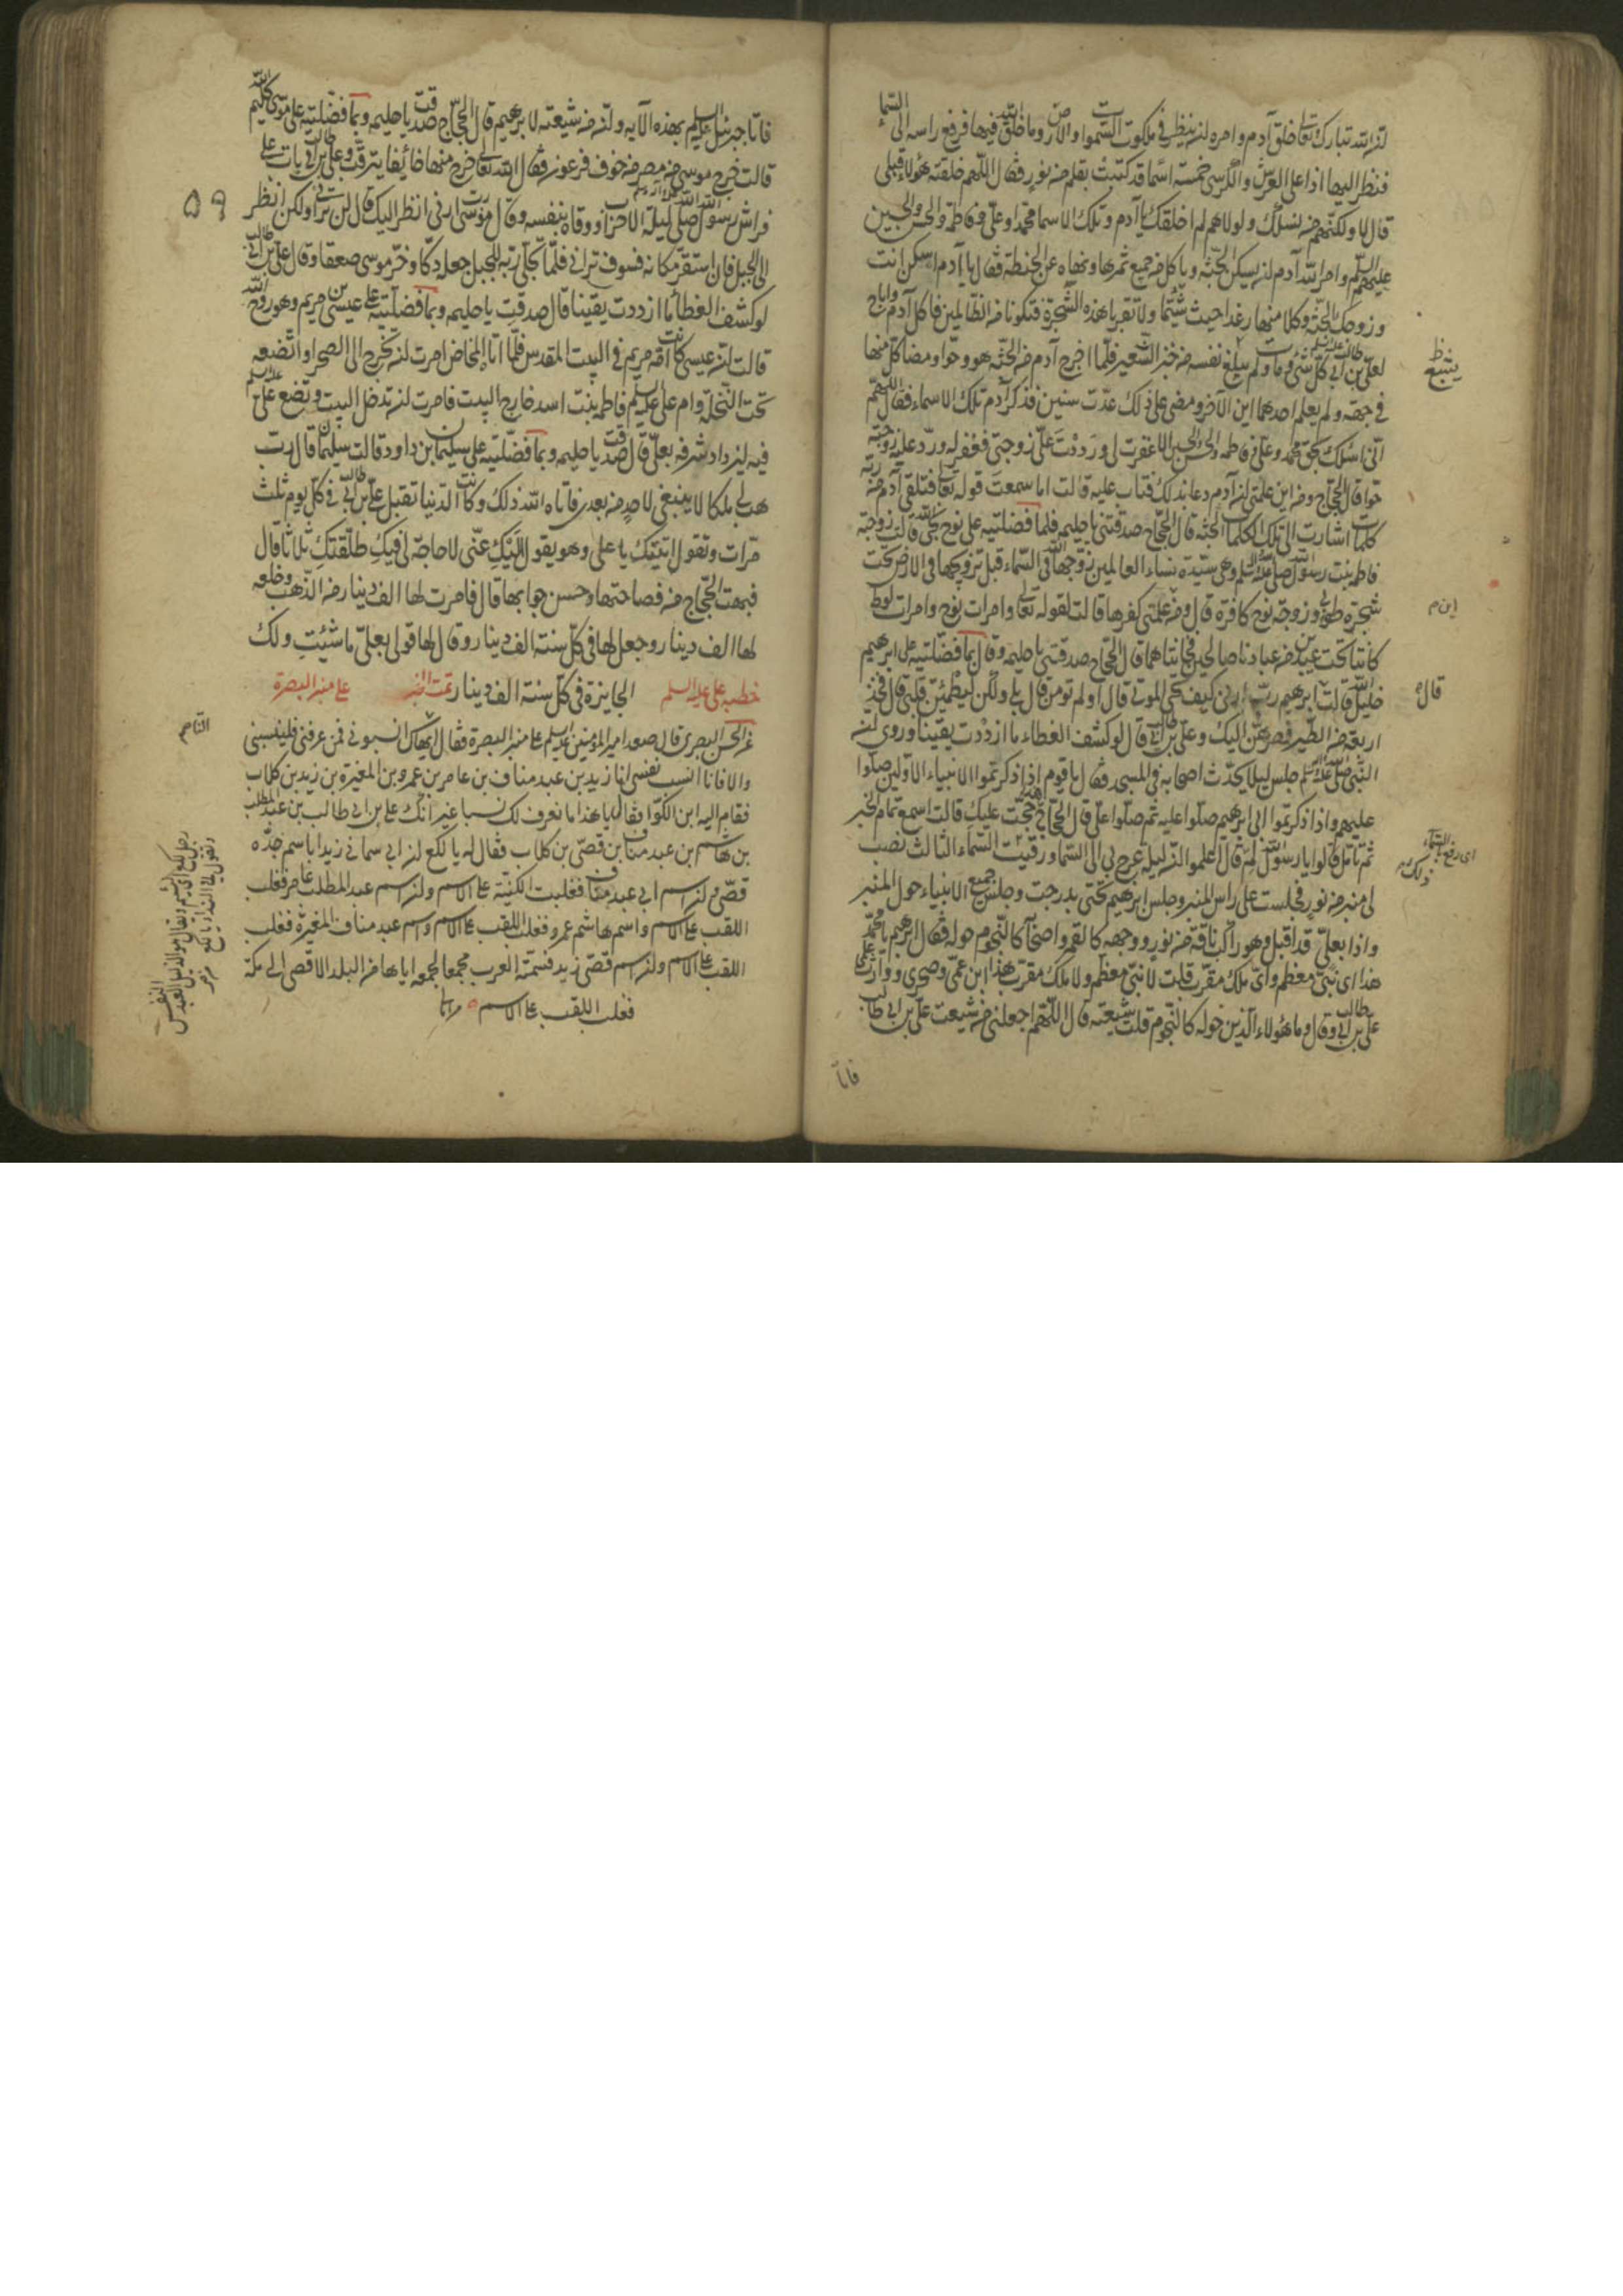 لان الله تبارك وتعالى خلق آدم وامره لان ينظر في ملكوت السموات والارض وما خلق الله فيها فرفع راسه الى السماء
فنظر اليها اذا على العرش والكرسي خمسة اسماء قد كتبت بقلم من نور فقال اللهم خلقته هؤلاء قبلي
قال لا ولكنهم من نسلك ولولاهم لم اخلقك يا آدم وتلك الاسما محمد وعلي وفاطمة والحسن والحسين
عليهم السلم وامر الله آدم لان يسكن الجنة وياكل من جميع ثمرها ونهاه عن الحنطة فقال يا آدم اسكن انت
وزوجك الجنة وكلا منها رغدا حيث شئتما ولا تقربا هذه الشجرة فتكونا من الظالمين فاكل آدم واباح
لعلي بن ابي طالب كل شيء وما ولم يبلغ نفسه من خبز الشعير فلما اخرج آدم من الجنة هو وحوا ومضا كل منها
في جهة ولم يعلم احدهما اين الآخر ومضى على ذلك عدت سنين فذكر آدم تلك الاسماء فقال اللهم
اني اسئلك بحق محمد وعلي وفاطمه والحسن والحسين الا غفرت لي ورددت علي زوجتي فغفر له ورد عليه زوجته
حوا قال الحجاج ومن اين علمتي لان آدم دعا بذلك فتاب عليه قالت اما سمعت قوله تعالى فتلقى آدم من ربه
كلمات اشارت الى تلك الكلمات الجنة قال الحجاج صدقتني يا حليمه فلما فضلتيه على نوح نجي الله قالت زوجته
فاطمه بنت رسول الله صلى الله عليه وسلم وهي سيدة نساء العالمين زوجها الله في السماء قبل تزويجها في الارض تحت
شجرة طوبى وزوجة نوح كافرة قال ومن علمتي كفرها قالت لقوله تعالى وامرات نوح وامرات لوط
كانتا تحت عبدين من عبادنا صالحين فخانتاهما قال الحجاج صدقتي يا حليمه وقال بما فضلتيه على ابرهيم
خليل الله قالت ابرهيم رب ارني كيف تحي الموتى قال اولم تومن قال بلى ولكن ليطمئن قلبي قال فخذ
اربعة من الطير فصرهن اليك وعلي بن ابي طالب قال لو كشف الغطاء ما ازددت يقينا وروي لان
النبي صلى الله عليه وسلم جلس ليلا يحدث اصحابه في المسجد فقال يا قوم اذا ذكرتموا الانبياء الاولين صلوا
عليهم واذا ذكرتموا ابي ابرهيم صلوا عليه ثم صلوا علي قال الحجاج حججت عليك قالت اسمع تمام الخبر
ثم تاتل قالوا يا رسول الله لم قال اعلموا ان ليلة عرج بي الى السما ورقيت السماء الثالث نصب
لي منبر من نور فجلست على راس المنبر وجلس ابرهيم تحتي بدرجت وجلس جميع الانبياء حول المنبر
واذا بعلي قد اقبل وهو راكب ناقة من نور ووجهه كالقمر واصحابه كالنجوم حوله فقال ابرهيم يا محمد
هذا اي نبي معظم واي ملك مقرب قلت لا نبي معظم ولا ملك مقرب هذا ابن عمي وصهري ووارث علمي
علي بن ابي طالب وقال وما هؤلاء الذين حوله كالنجوم قلت شيعته قال اللهم اجعلني من شيعت علي بن ابي طالب
فاتا
ينبغ ظ
ابن م
قال
اي رفع السماء
ذلك
فاتا جبرئيل عليه السلم بهذه الآيه ولان من شيعته لابرهيم قال الحجاج صدقت يا حليمه وبما فضلتيه على موسى كليم الله
قالت خرج موسى من مصر من خوف فرعون فقال الله تعالى فخرج منها خائفا يترقب وعلي بن ابي طالب بات على
فراش رسول الله صلى الله عليه وآله وسلم ليلة الاحزاب ووقاه بنفسه وقال موسى رب ارني انظر اليك قال لن تراني ولكن انظر
الى الجبل فان استقر مكانه فسوف تراني فلما تجلى ربه للجبل جعله دكا وخر موسى صعقا وقال علي بن ابي طالب
لو كشف الغطا ما ازددت يقينا قال صدقت يا حليمه وبما فضلتيه على عيسى بن مريم وهو روح الله
قالت لان عيسى كانت امه مريم في البيت المقدس فلما اتاها المخاض امرت لان تخرج الى الصحراو اتضعه
تحت النخلة وام علي عليه السلم فاطمه بنت اسد خارج البيت فامرت لان تدخل البيت وتضع علي عليه السلم
فيه ليزداد شرفه بعلي قال صدقت يا حليمه وبما فضلتيه على سليمان بن داود قالت سليمان قال رب
هب لي ملكا لا ينبغي لاحد من بعدي فاتاه الله ذلك وكانت الدنيا تقبل علي بن ابي طالب في كل يوم ثلث
مرات وتقول اتيتك يا علي وهو يقول اليك عني لا حاجة لي فيك طلقتك ثلاثا قال
فبهت الحجاج من فصاحتها وحسن جوابها قال فامرت لها الف دينار من الذهب وخلعه
لها الف دينار وجعل لها في كل سنة الف دينار وقال لها قولي بعلي ما شئت ولك
الجايزة في كل سنة الف دينار تمت الخبر
خطبه علي عليه السلم على منبر البصرة
عن الحسن البصري قال صعد امير المؤمنين عليه السلم على منبر البصرة فقال ايها الناس انسبوني فمن عرفني فلينسبني
والا فانا انسب نفسي انا زيد بن عبد مناف بن عامر بن عمرو بن المغيرة بن زيد بن كلاب
فقام اليه ابن الكوا فقال له يا هذا ما نعرف لك نسبا غير انك علي بن ابي طالب بن عبد المطلب
بن هاشم بن عبد مناف بن قصي بن كلاب فقال له يا لكع لان ابي سماني زيدا باسم جده
قصي ولان اسم ابي عبد مناف فغلبت الكنية على الاسم ولان اسم عبد المطلب عامر فغلب
اللقب على الاسم واسم هاشم عمرو فغلب اللقب على الاسم واسم عبد مناف المغيرة فغلب
اللقب على الاسم ولان اسم قصي زيد فسمته العرب مجمعا لجمعه اياها من البلد الاقصى الى مكة
فغلب اللقب على الاسم
٥٩
رجل لكع اي لئيم ويقال هو الذليل العبد النفس
وتقول في النداء يا لكع